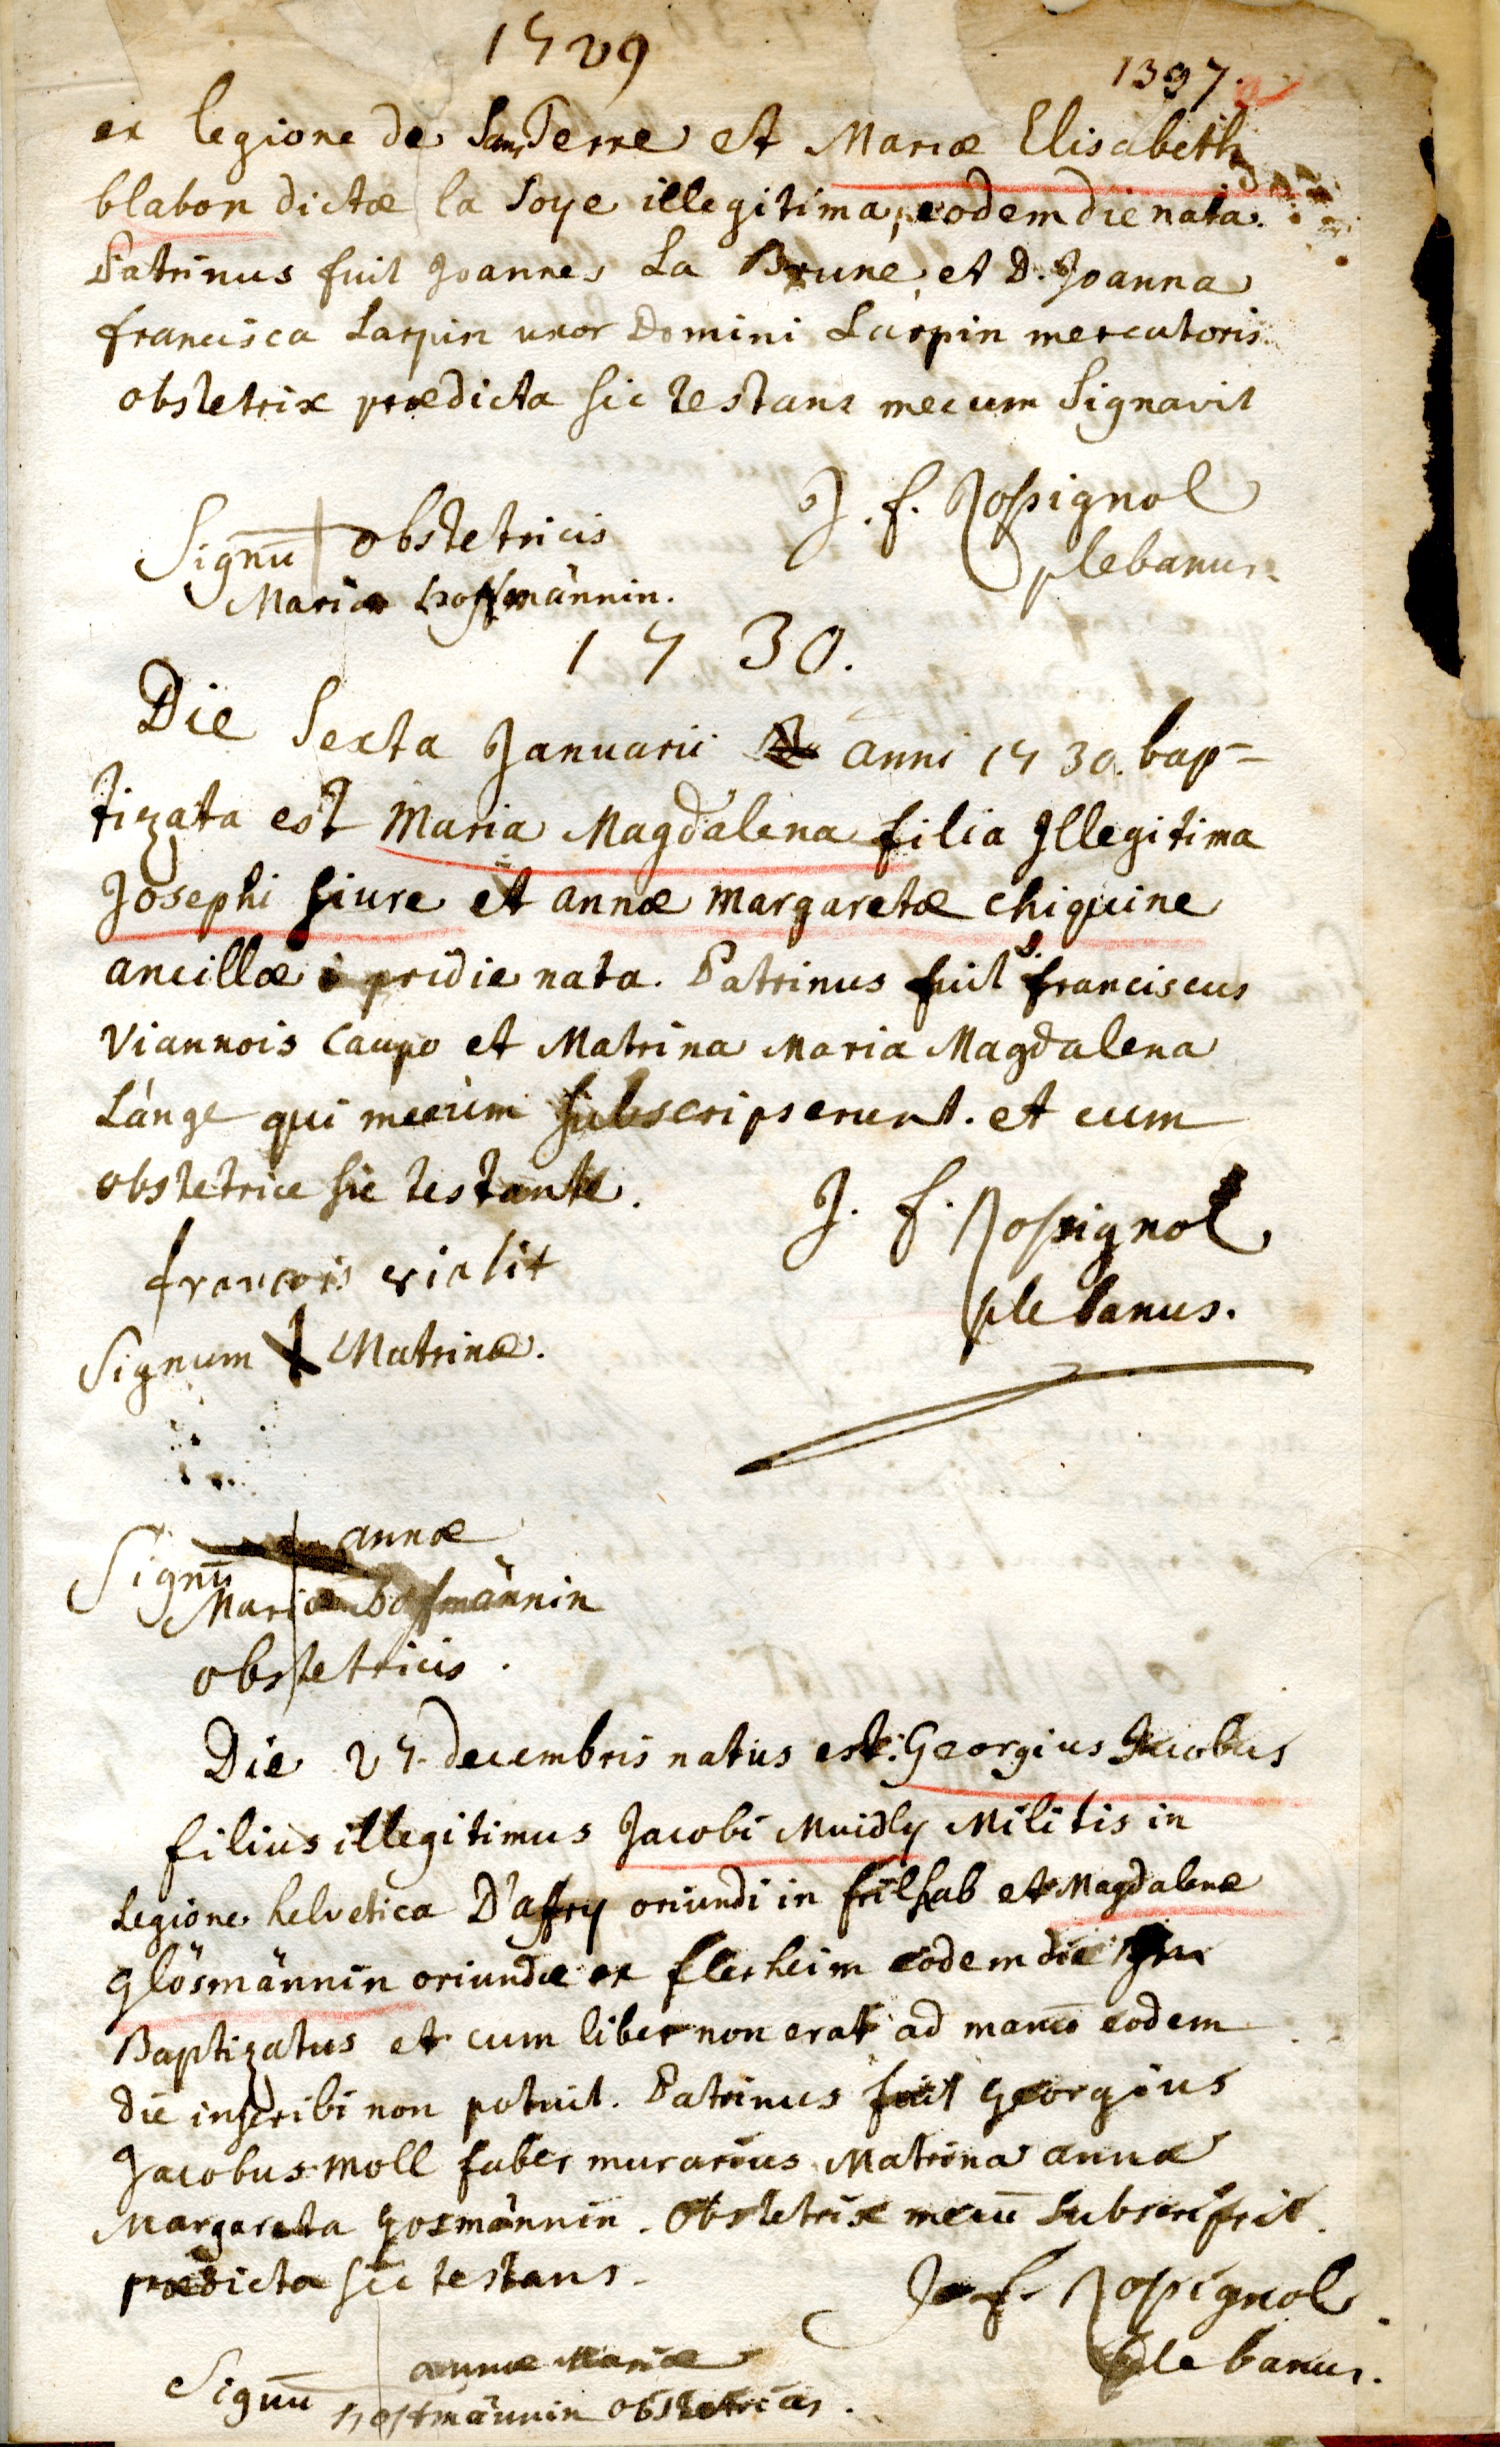 1729
1397.
ex legione de SansTerre et Mariæ Elisabeth
blabon dictæ la Soye illegitima, eodem die nata.
Patrinus fuit Joannes La Brune, et D. Joanna
francisca Larpin uxor Domini Larpin mercatoris.
obstetrix prædicta sic testans mecum Signavit
J. f. Rossignol
plebanus.
Signū obstetricis
Mariæ hoffmännin.
1730.
Die Sexta Januarii anni 1730. bap-
tizata est Maria Magdalena filia Illegitima
Josephi Siure et annæ margaretæ chiquine
ancillæ pridie nata. Patrinus fuit D. franciscus
Viannois caupo et Matrina Maria Magdalena
Länge qui mecum subscripserunt. et cum
obstetrice sic testante.
J. f. Rossignol
plebanus.
francois
Signum Matrinæ.
Signū annæ
Mariæ hoffmännin
obstetricis.
Die 27. decembris natus est Georgius Jacobus
filius illegitimus Jacobi Muidly Militis in
Legione helvetica D'affry oriundi in et Magdalenæ
Glösmännin oriundæ ex flersheim eodem die
Baptizatus et cum liber non erat ad manū eodem
die inscribi non potuit. Patrinus fuit Georgius
Jacobus Moll faber murarius Matrina anna
Margareta Gosmännin. Obstetrix mecū subscripsit
prædicta sic testans.
J. f. Rossignol
plebanus.
Signū annæ Mariæ
hoffmännin obstetricis.